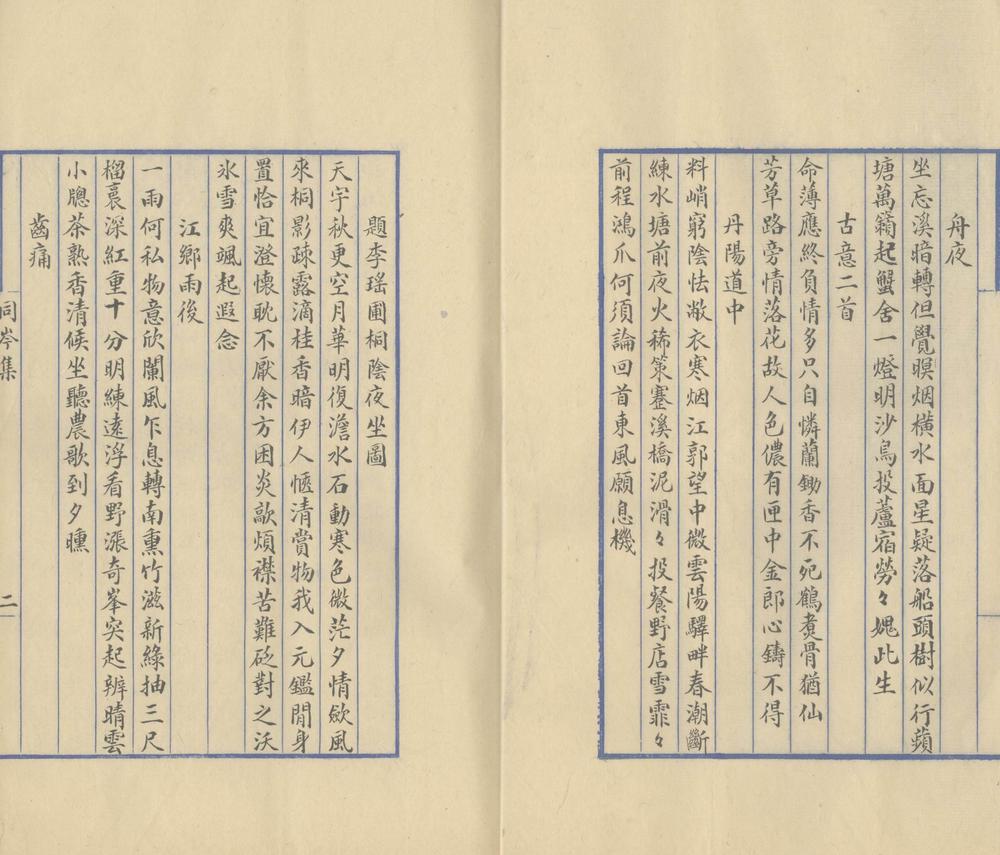 舟夜
坐忘溪暗轉但覺暝烟橫水面星疑落船頭樹似行蘋
塘萬籟起蟹舍一燈明沙鳥投蘆宿勞々媿此生
古意二首
命薄應終負情多只自憐蘭鋤香不死鶴煑骨猶仙
芳草路旁情落花故人色儂有匣中金郎心鑄不得
丹陽道中
料峭窮陰怯敝衣寒烟江郭望中微雲陽驛畔春潮斷
練水塘前夜火稀策蹇溪橋泥滑々投餐野店雪霏々
前程鴻爪何須論回首東風願息機
題李瑤圃桐陰夜坐圖
天宇秋更空月華明復澹水石動寒色微茫夕情歛風
來桐影疎露滴桂香暗伊人愜清賞物我入元鑑閒身
置恰宜澄懷眈不厭余方困炎歊煩襟苦難砭對之沃
氷雪爽颯起遐念
江鄉雨後
一雨何私物意欣闌風乍息轉南熏竹滋新綠抽三尺
榴裛深紅重十分明練遠浮看野漲奇峯突起辨晴雲
小牕茶熟香清候坐聽農歌到夕曛
齒痛
同岑集
二